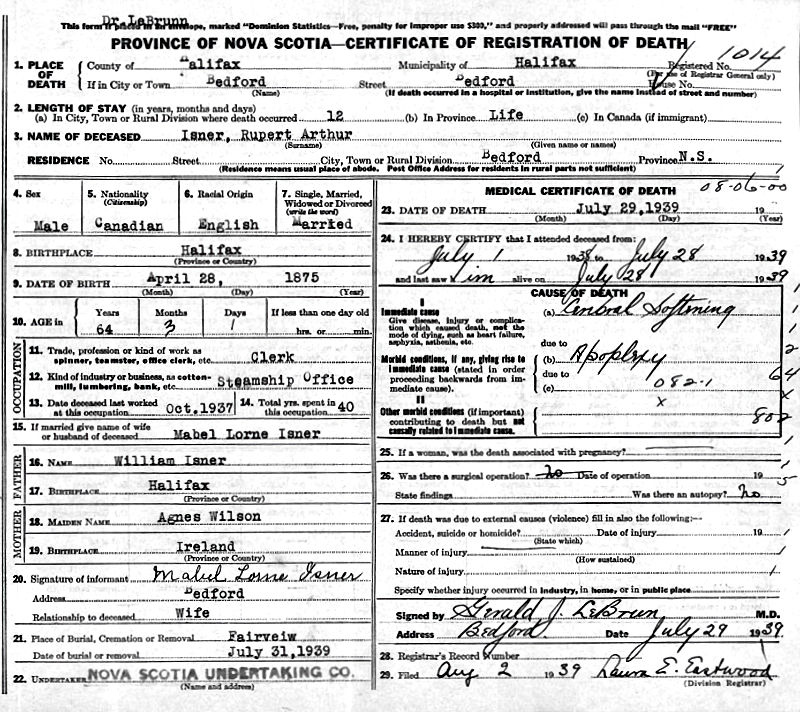 Dr. LeBrunn
This form if placed in an envelope, marked "Dominion Statistics—Free, penalty for improper use $300," and properly addressed will pass through the mail "FREE"
PROVINCE OF NOVA SCOTIA—CERTIFICATE OF REGISTRATION OF DEATH
1. PLACE OF DEATH County of Halifax Municipality of Halifax Registered No. 1014
(For use of Registrar General only)
If in City or Town Bedford Street Bedford House No.
(Name) (If death occurred in a hospital or institution, give the name instead of street and number)
2. LENGTH OF STAY (in years, months and days)
(a) In City, Town or Rural Division where death occurred 12 (b) In Province Life (c) In Canada (if immigrant)
3. NAME OF DECEASED Isner, Rupert Arthur
(Surname) (Given name or names)
RESIDENCE No. Street City, Town or Rural Division Bedford Province N.S.
(Residence means usual place of abode. Post Office Address for residents in rural parts not sufficient)
4. Sex Male
5. Nationality (Citizenship) Canadian
6. Racial Origin English
7. Single, Married, Widowed or Divorced (write the word) Married
8. BIRTHPLACE Halifax
(Province or Country)
9. DATE OF BIRTH April 28, 1875
(Month) (Day) (Year)
10. AGE in Years 64 Months 3 Days 1 If less than one day old hrs. or min.
OCCUPATION
11. Trade, profession or kind of work as spinner, teamster, office clerk, etc. Clerk
12. Kind of industry or business, as cotton-mill, lumbering, bank, etc. Steamship Office
13. Date deceased last worked at this occupation Oct.1937 14. Total yrs. spent in this occupation 40
15. If married give name of wife or husband of deceased Mabel Lorne Isner
FATHER
16. NAME William Isner
17. BIRTHPLACE Halifax
(Province or Country)
MOTHER
18. MAIDEN NAME Agnes Wilson
19. BIRTHPLACE Ireland
(Province or Country)
20. Signature of informant Mabel Lorne Isner
Address Bedford
Relationship to deceased Wife
21. Place of Burial, Cremation or Removal Fairveiw
Date of burial or removal July 31,1939
22. UNDERTAKER NOVA SCOTIA UNDERTAKING CO.
(Name and address)
MEDICAL CERTIFICATE OF DEATH 08-06-00
23. DATE OF DEATH July 29,1939 19
(Month) (Day) (Year)
24. I HEREBY CERTIFY that I attended deceased from:
July 1 1938 to July 28 1939
and last saw him alive on July 28 1939
CAUSE OF DEATH
I
Immediate cause (a) Cerebral Softening
Give disease, injury or complication which caused death, not the mode of dying, such as heart failure, asphyxia, asthenia, etc.
due to
Morbid conditions, if any, giving rise to immediate cause (stated in order proceeding backwards from immediate cause). (b) Apoplexy
due to 64
(c) 082-1
x
II
Other morbid conditions (if important) contributing to death but not causally related to immediate cause. 802
25. If a woman, was the death associated with pregnancy?
26. Was there a surgical operation? no Date of operation 19
State findings Was there an autopsy? no
27. If death was due to external causes (violence) fill in also the following:—
Accident, suicide or homicide? Date of injury 19
(State which)
Manner of injury
(How sustained)
Nature of injury
Specify whether injury occurred in industry, in home, or in public place
Signed by Gerald J. LeBrun M.D.
Address Bedford Date July 29 1939
28. Registrar's Record Number
29. Filed Aug 2 1939 Laura E. Eastwood
(Division Registrar)